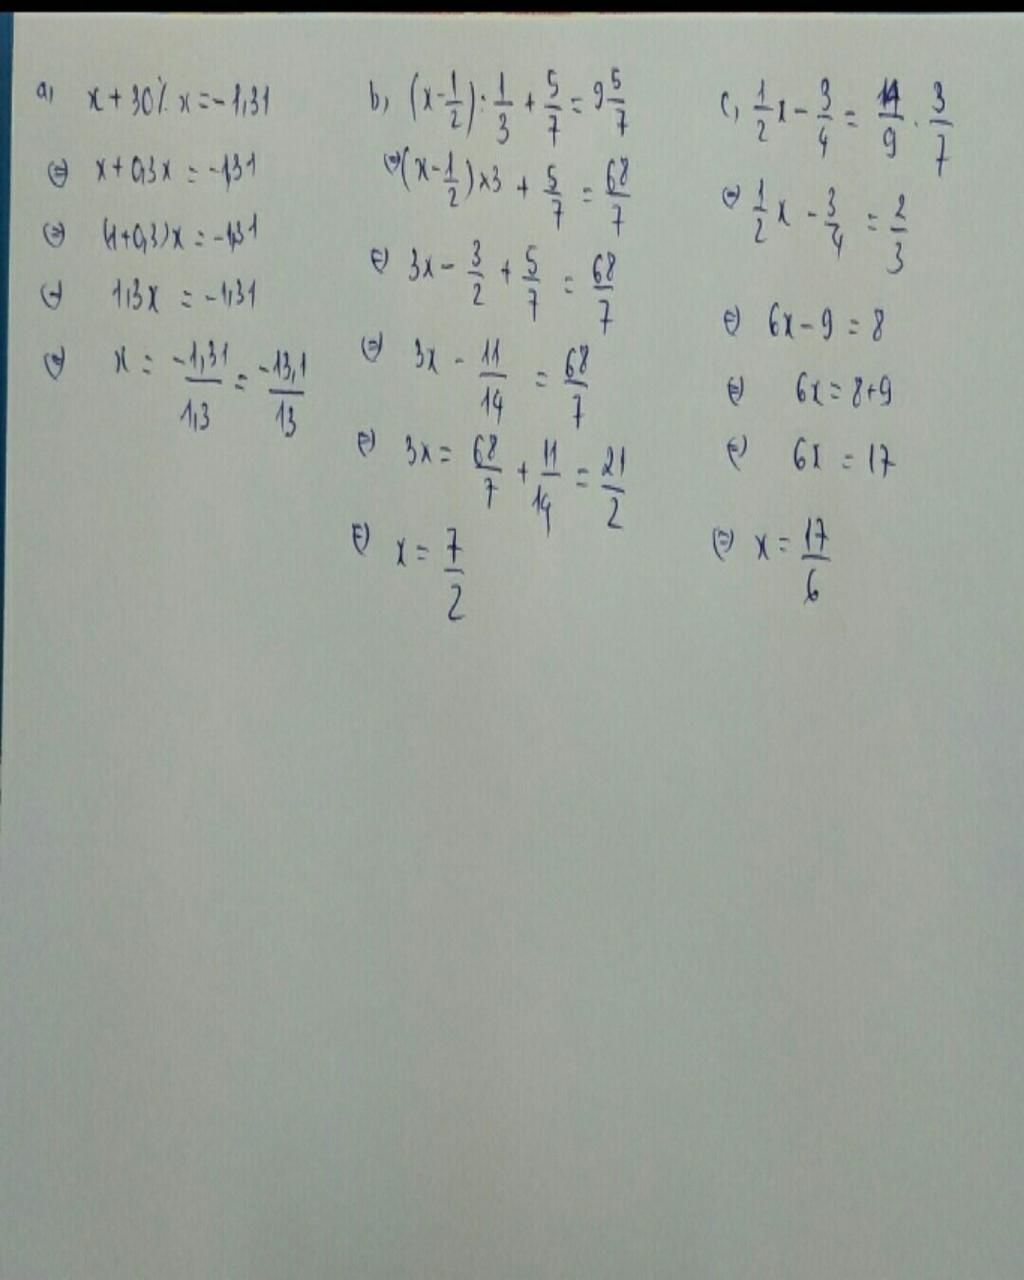 a, x + 30% x = -1,31
⇔ x + 0,3x = -1,31
⇔ (1+0,3)x = -1,31
⇔ 1,3x = -1,31
⇔ x = -1,31/1,3 = -13,1/13
b, (x - 1/2) : 1/3 + 5/7 = 9 5/7
⇔ (x - 1/2) × 3 + 5/7 = 68/7
⇔ 3x - 3/2 + 5/7 = 68/7
⇔ 3x - 11/14 = 68/7
⇔ 3x = 68/7 + 11/14 = 21/2
⇔ x = 7/2
c, 1/2 x - 3/4 = 14/9 . 3/7
⇔ 1/2 x - 3/4 = 2/3
⇔ 6x - 9 = 8
⇔ 6x = 8+9
⇔ 6x = 17
⇔ x = 17/6